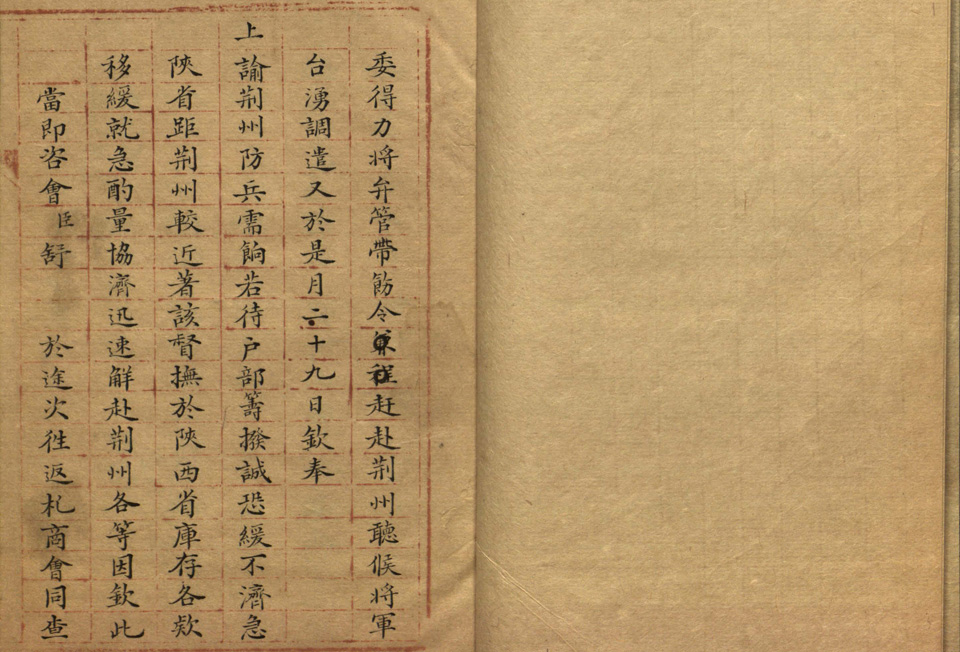 委得力將弁管帶飭令兼程赶赴荆州聽候將軍
台湧調遣又於是月二十九日欽奉
上諭荆州防兵需餉若待户部籌撥誠恐緩不濟急
陝省距荆州較近著該督撫於陝西省庫存各欵
移緩就急酌量協濟迅速解赴荆州各等因欽此
當即咨會臣舒 於途次徃返札商會同查